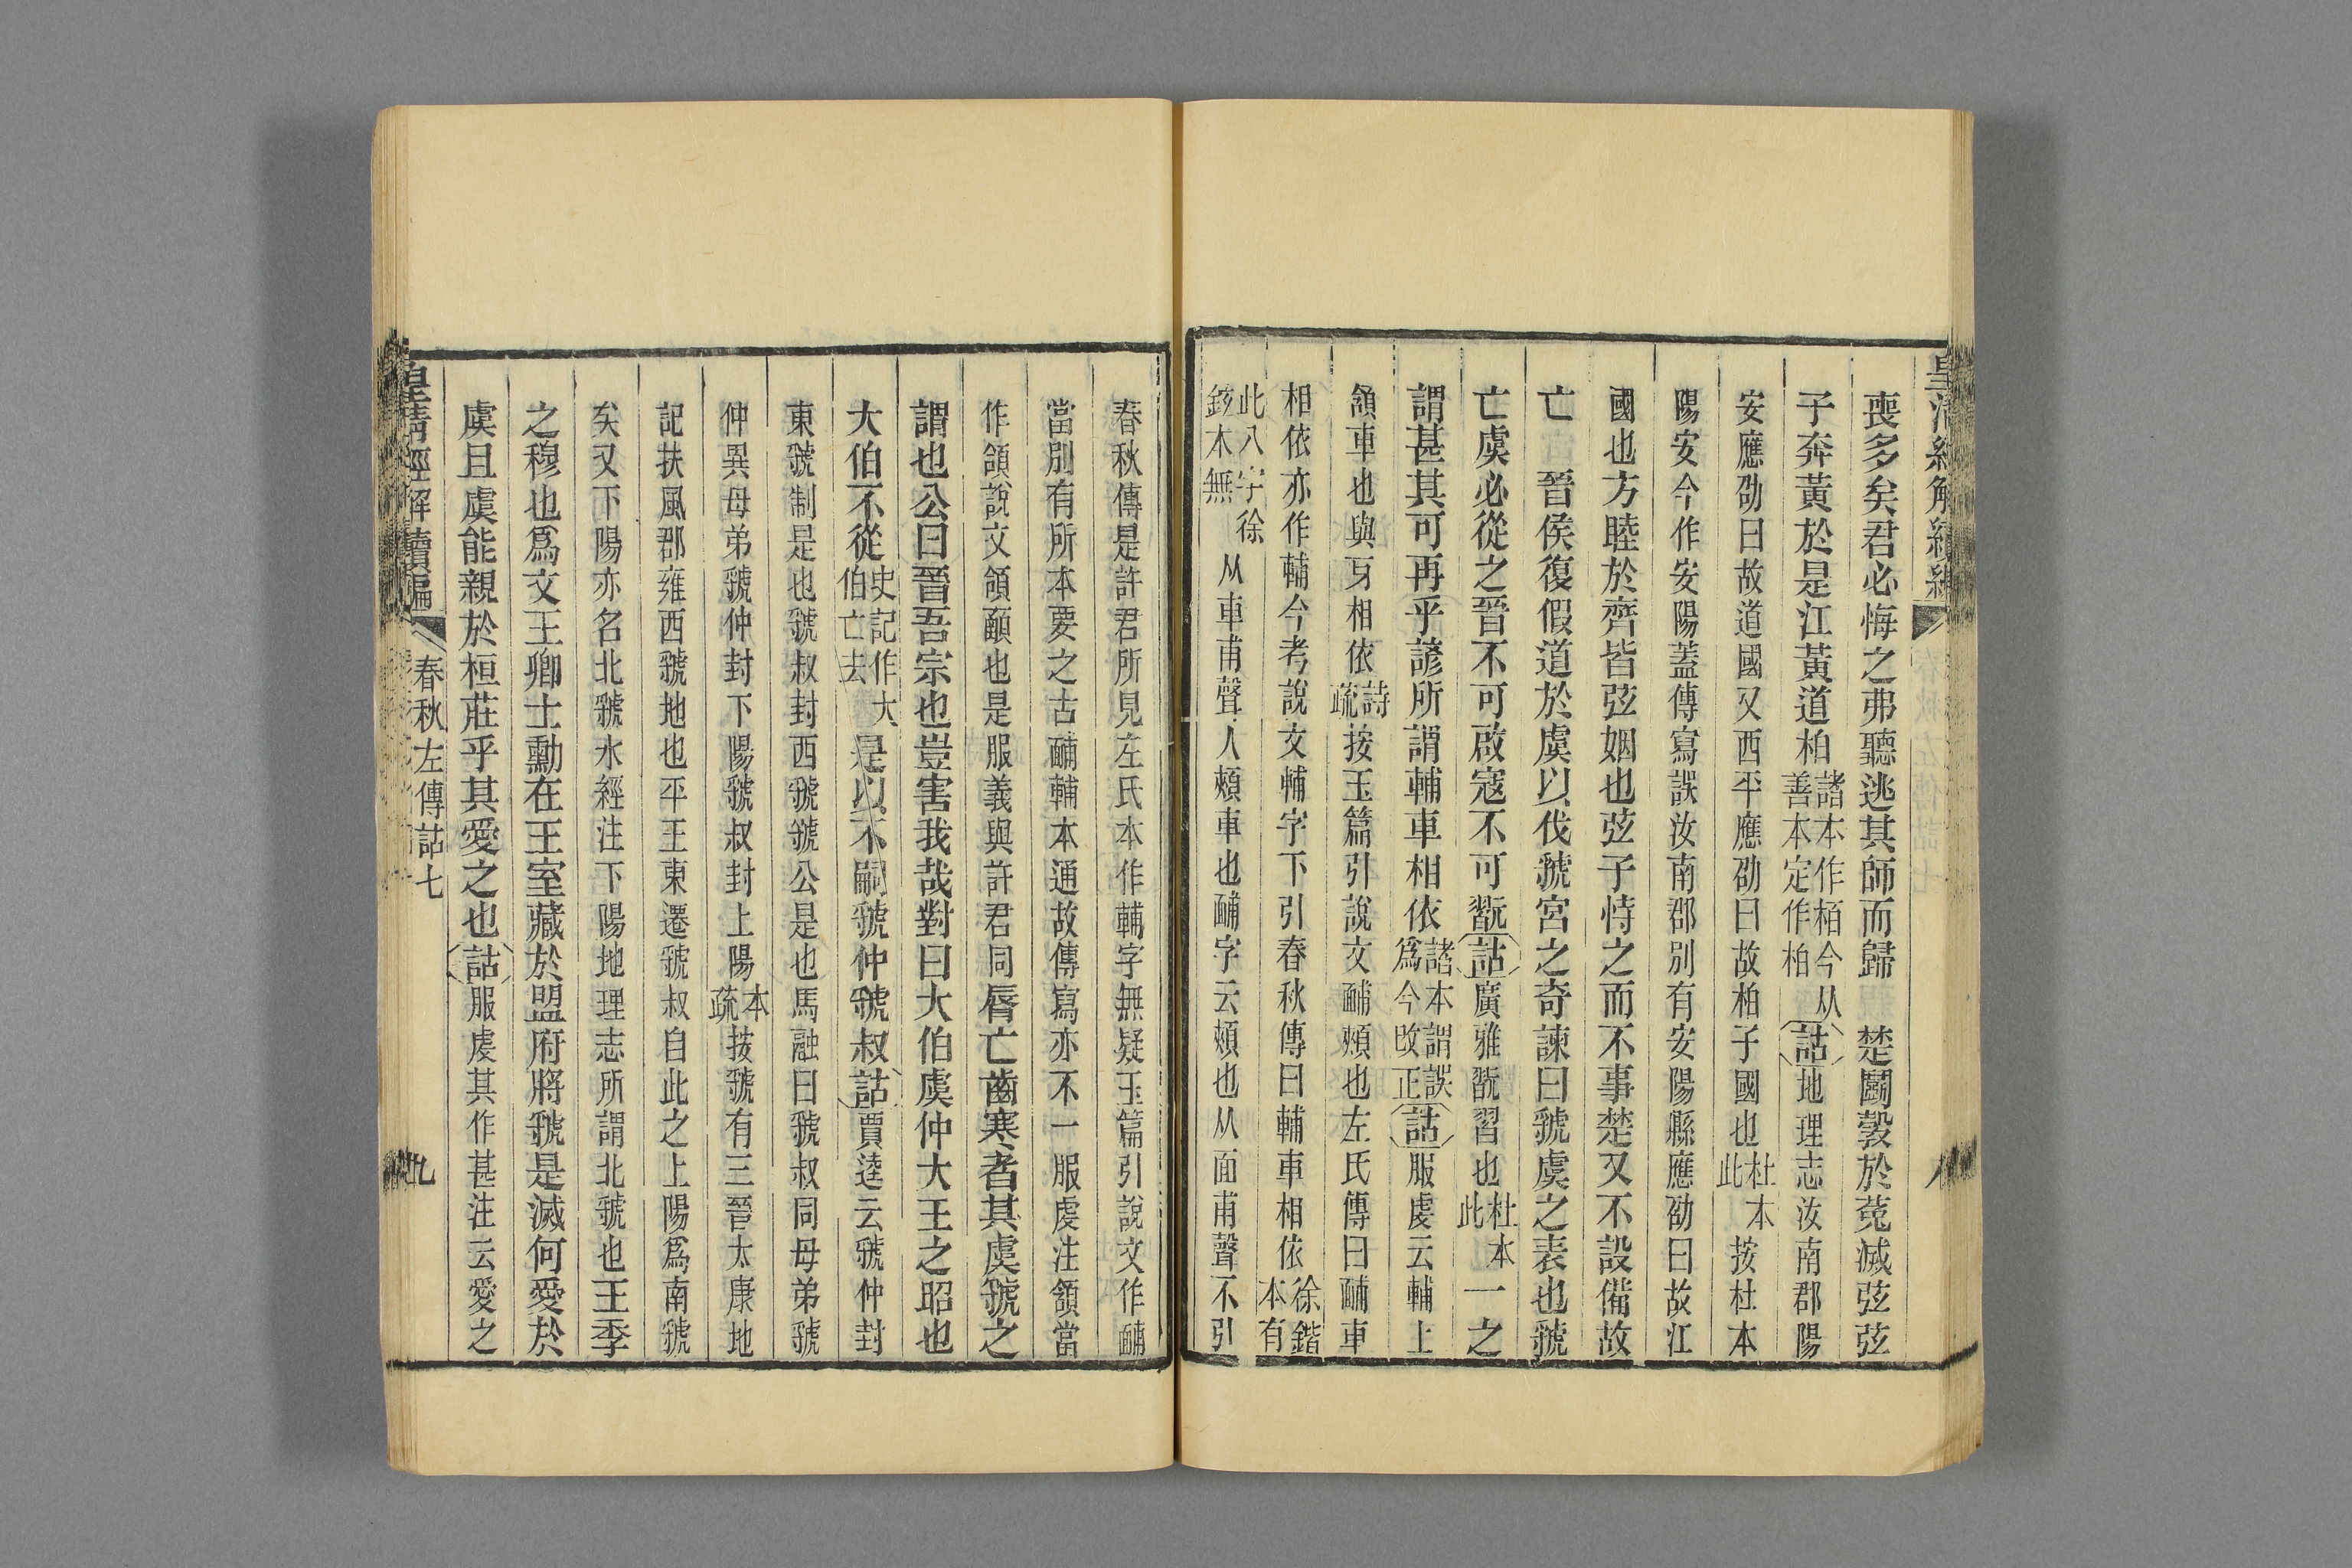 皇清經解續編
喪多矣君必悔之弗聽逃其師而歸　楚鬭穀於菟滅弦弦
子奔黃於是江黃道柏諸本作栢今从善本定作柏詁地理志汝南郡陽
安應劭曰故道國又西平應劭曰故柏子國也杜本此按杜本
陽安今作安陽蓋傳寫誤汝南郡別有安陽縣應劭曰故江
國也方睦於齊皆弦姻也弦子恃之而不事楚又不設備故
亡　晉侯復假道於虞以伐虢宮之奇諫曰虢虞之表也虢
亡虞必從之晉不可啟寇不可翫詁廣雅翫習也杜本此一之
謂甚其可再乎諺所謂輔車相依諸本謂誤爲今改正詁服虔云輔上
頷車也與牙相依詩疏按玉篇引說文䩉頰也左氏傳曰䩉車
相依亦作輔今考說文輔字下引春秋傳曰輔車相依徐鍇本有
此八字徐鉉本無从車甫聲人頰車也䩉字云頰也从面甫聲不引
春秋傳是許君所見左氏本作輔字無疑玉篇引說文作䩉
當別有所本要之古䩉輔本通故傳寫亦不一服虔注頷當
作頜說文頜顄也是服義與許君同脣亡齒寒者其虞虢之
謂也公曰晉吾宗也豈害我哉對曰大伯虞仲大王之昭也
大伯不從史記作大伯亡去是以不嗣虢仲虢叔詁賈逵云虢仲封
東虢制是也虢叔封西虢虢公是也馬融曰虢叔同母弟虢
仲異母弟虢仲封下陽虢叔封上陽本疏按虢有三晉太康地
記扶風郡雍西虢地也平王東遷虢叔自此之上陽爲南虢
矣又下陽亦名北虢水經注下陽地理志所謂北虢也王季
之穆也爲文王卿士勳在王室藏於盟府將虢是滅何愛於
虞且虞能親於桓莊乎其愛之也詁服虔其作甚注云愛之
皇清經解續編
春秋左傳詁七
九